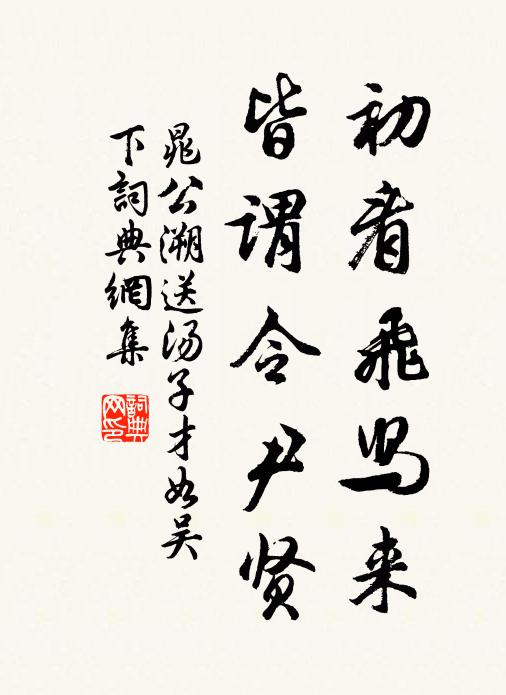 初看飛舄来
皆谓令尹贤
晁公溯送汤子才如吴
下詞典網集
詞典
网印